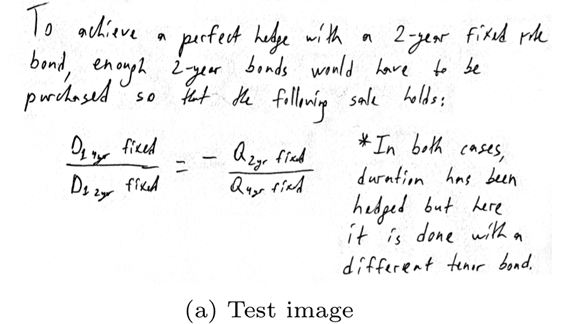 To achieve a perfect hedge with a 2-year fixed rate
bond, enough 2-year bonds would have to be
purchased so that the following sale holds:
D1 4yr fixed / D1 2yr fixed = - Q2yr fixed / Q4yr fixed
*In both cases,
duration has been
hedged but here
it is done with a
different tenor bond.
(a) Test image